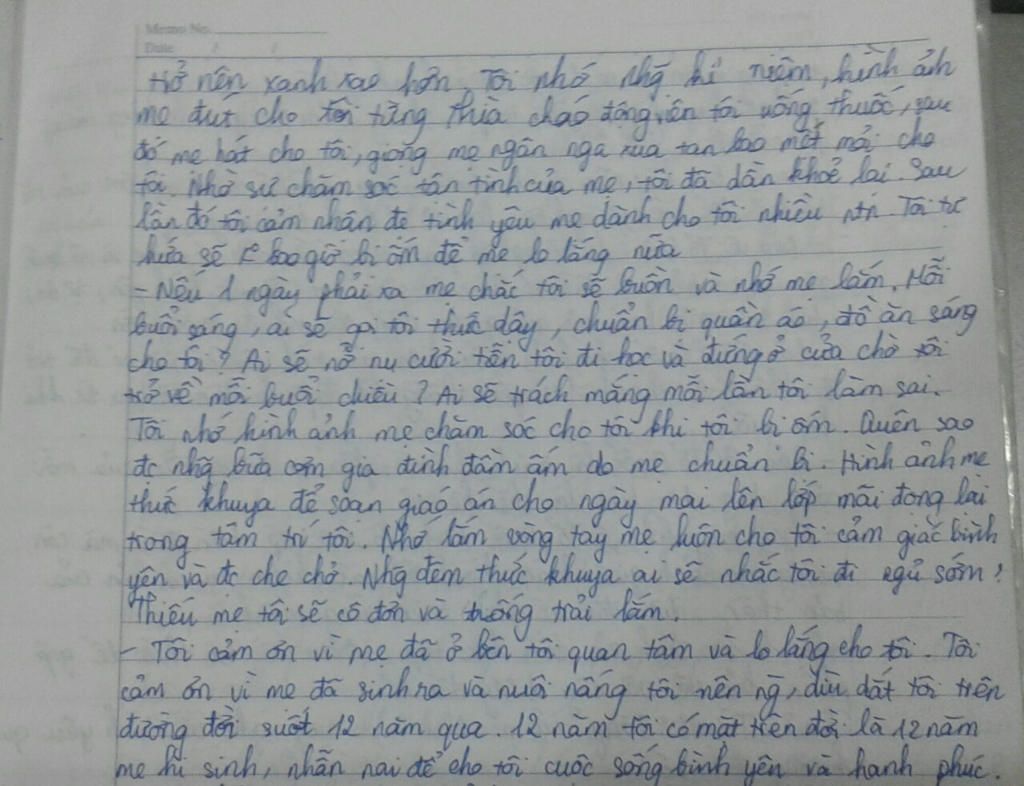 Memo No.
Date / /
trở nên xanh xao hơn. Tôi nhớ nhg kỉ niệm, hình ảnh
mẹ đút cho tôi từng thìa cháo động viên tôi uống thuốc, sau
đó mẹ hát cho tôi, giọng mẹ ngân nga xua tan bao mệt mỏi cho
tôi. Nhờ sự chăm sóc tận tình của mẹ, tôi đã dần khoẻ lại. Sau
lần đó tôi cảm nhận đc tình yêu mẹ dành cho tôi nhiều ntn. Tôi tự
hứa sẽ k bao giờ bị ốm để mẹ lo lắng nữa
- Nếu 1 ngày phải xa mẹ chắc tôi sẽ buồn và nhớ mẹ lắm. Mỗi
buổi sáng, ai sẽ gọi tôi thức dậy, chuẩn bị quần áo, đồ ăn sáng
cho tôi? Ai sẽ nở nụ cười tiễn tôi đi học và đứng ở cửa chờ tôi
trở về mỗi buổi chiều? Ai sẽ trách mắng mỗi lần tôi làm sai.
Tôi nhớ hình ảnh mẹ chăm sóc cho tôi khi tôi bị ốm. Quên sao
đc nhg bữa cơm gia đình đầm ấm do mẹ chuẩn bị. Hình ảnh mẹ
thức khuya để soạn giáo án cho ngày mai lên lớp mãi đọng lại
trong tâm trí tôi. Nhớ lắm vòng tay mẹ luôn cho tôi cảm giác bình
yên và đc che chở. Nhg đêm thức khuya ai sẽ nhắc tôi đi ngủ sớm?
Thiếu mẹ tôi sẽ cô đơn và trống trải lắm.
- Tôi cảm ơn vì mẹ đã ở bên tôi quan tâm và lo lắng cho tôi. Tôi
cảm ơn vì mẹ đã sinh ra và nuôi nấng tôi nên ng, dìu dắt tôi trên
đường đời suốt 12 năm qua. 12 năm tôi có mặt trên đời là 12 năm
mẹ hi sinh, nhẫn nại để cho tôi cuộc sống bình yên và hạnh phúc.